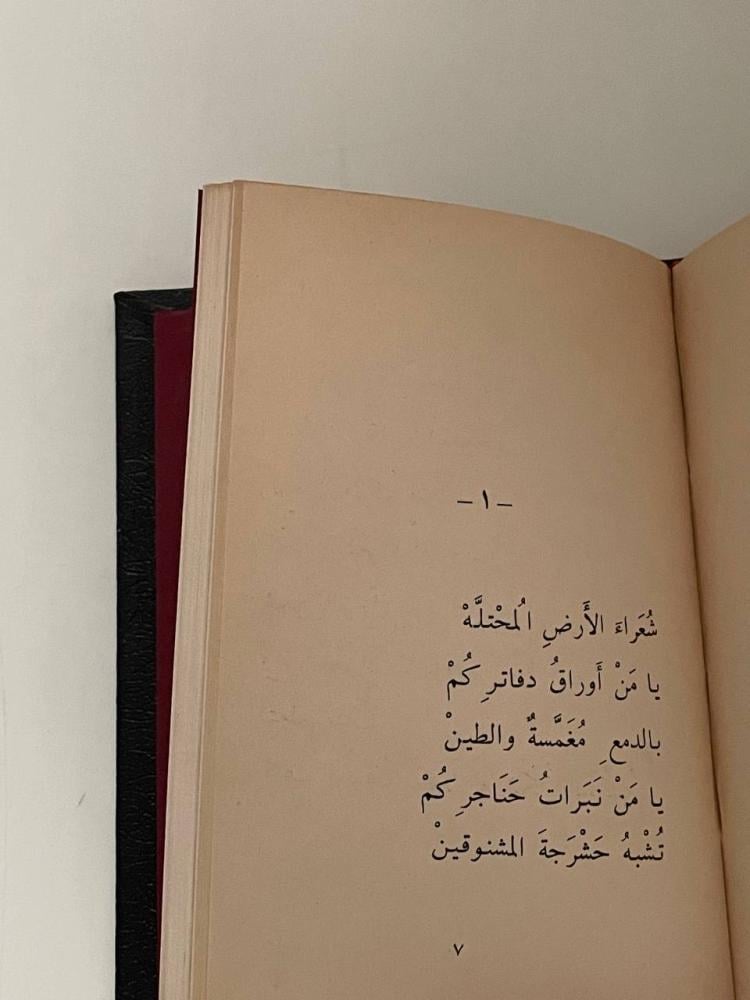 – ١ –
شُعَراءَ الأَرضِ المُحْتلَّهْ
يا مَنْ أَوراقُ دفاترِكُمْ
بالدمعِ مُغَمَّسةٌ والطينْ
يا مَنْ نَبَراتُ حَنَاجرِكُمْ
تُشْبهُ حَشْرَجةَ المشنوقينْ
٧